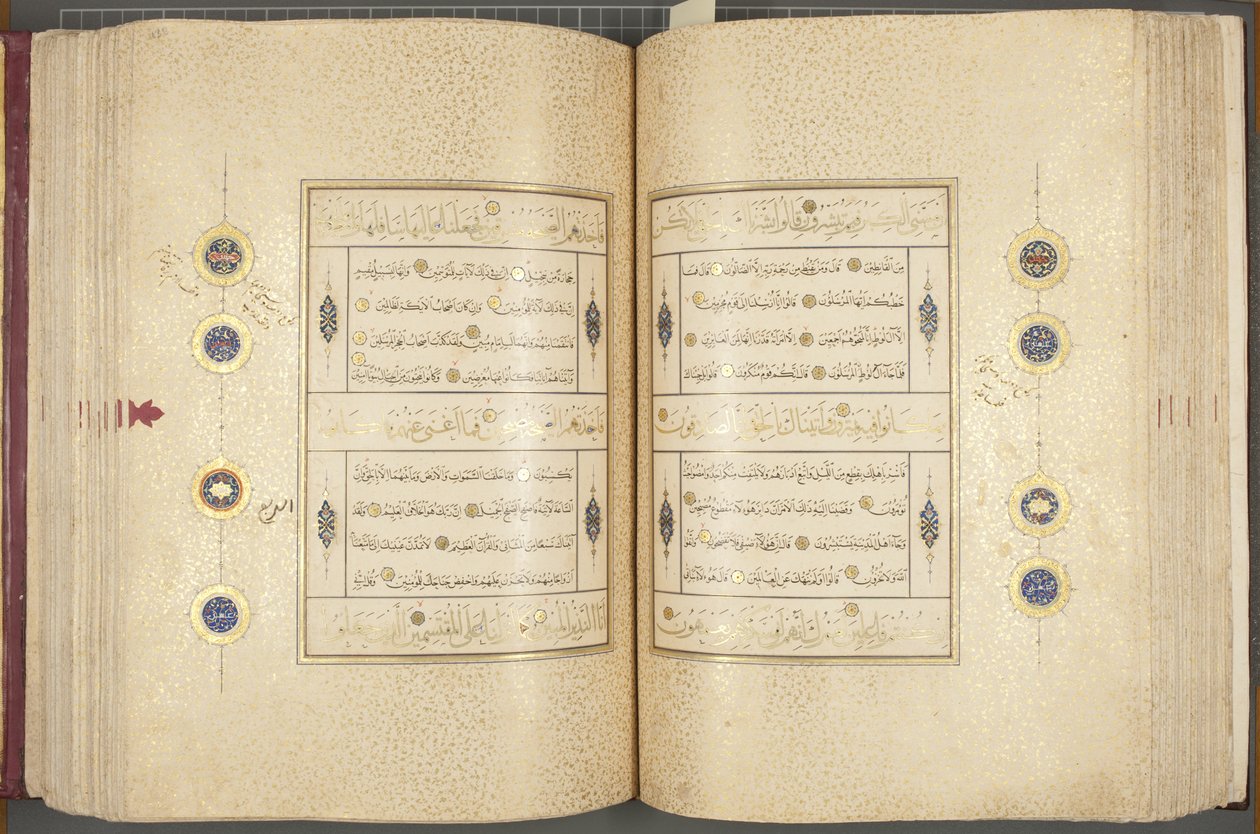 مسني الكبر فبم تبشرون قالوا بشرناك بالحق فلا تكن
من القانطين قال ومن يقنط من رحمة ربه الا الضالون قال فما
خطبكم ايها المرسلون قالوا انا ارسلنا الى قوم مجرمين
الا آل لوط انا لمنجوهم اجمعين الا امرأته قدرنا انها لمن الغابرين
فلما جاء آل لوط المرسلون قال انكم قوم منكرون قالوا بل جئناك
بما كانوا فيه يمترون واتيناك بالحق وانا لصادقون
فاسر باهلك بقطع من الليل واتبع ادبارهم ولا يلتفت منكم احد وامضوا حيث
تؤمرون وقضينا اليه ذلك الامر ان دابر هؤلاء مقطوع مصبحين
وجاء اهل المدينة يستبشرون قال ان هؤلاء ضيفي فلا تفضحون واتقوا
الله ولا تخزون قالوا اولم ننهك عن العالمين قال هؤلاء بناتي
ان كنتم فاعلين لعمرك انهم لفي سكرتهم يعمهون
فاخذتهم الصيحة مشرقين فجعلنا عاليها سافلها وامطرنا عليهم
حجارة من سجيل ان في ذلك لآيات للمتوسمين وانها لبسبيل مقيم
ان في ذلك لآية للمؤمنين وان كان اصحاب الايكة لظالمين
فانتقمنا منهم وانهما لبامام مبين ولقد كذب اصحاب الحجر المرسلين
وآتيناهم آياتنا فكانوا عنها معرضين وكانوا ينحتون من الجبال بيوتا آمنين
فاخذتهم الصيحة مصبحين فما اغنى عنهم ما كانوا
يكسبون وما خلقنا السموات والارض وما بينهما الا بالحق وان
الساعة لآتية فاصفح الصفح الجميل ان ربك هو الخلاق العليم ولقد
آتيناك سبعا من المثاني والقرآن العظيم لا تمدن عينيك الى ما متعنا به
ازواجا منهم ولا تحزن عليهم واخفض جناحك للمؤمنين وقل اني
انا النذير المبين كما انزلنا على المقتسمين الذين جعلوا
الربع